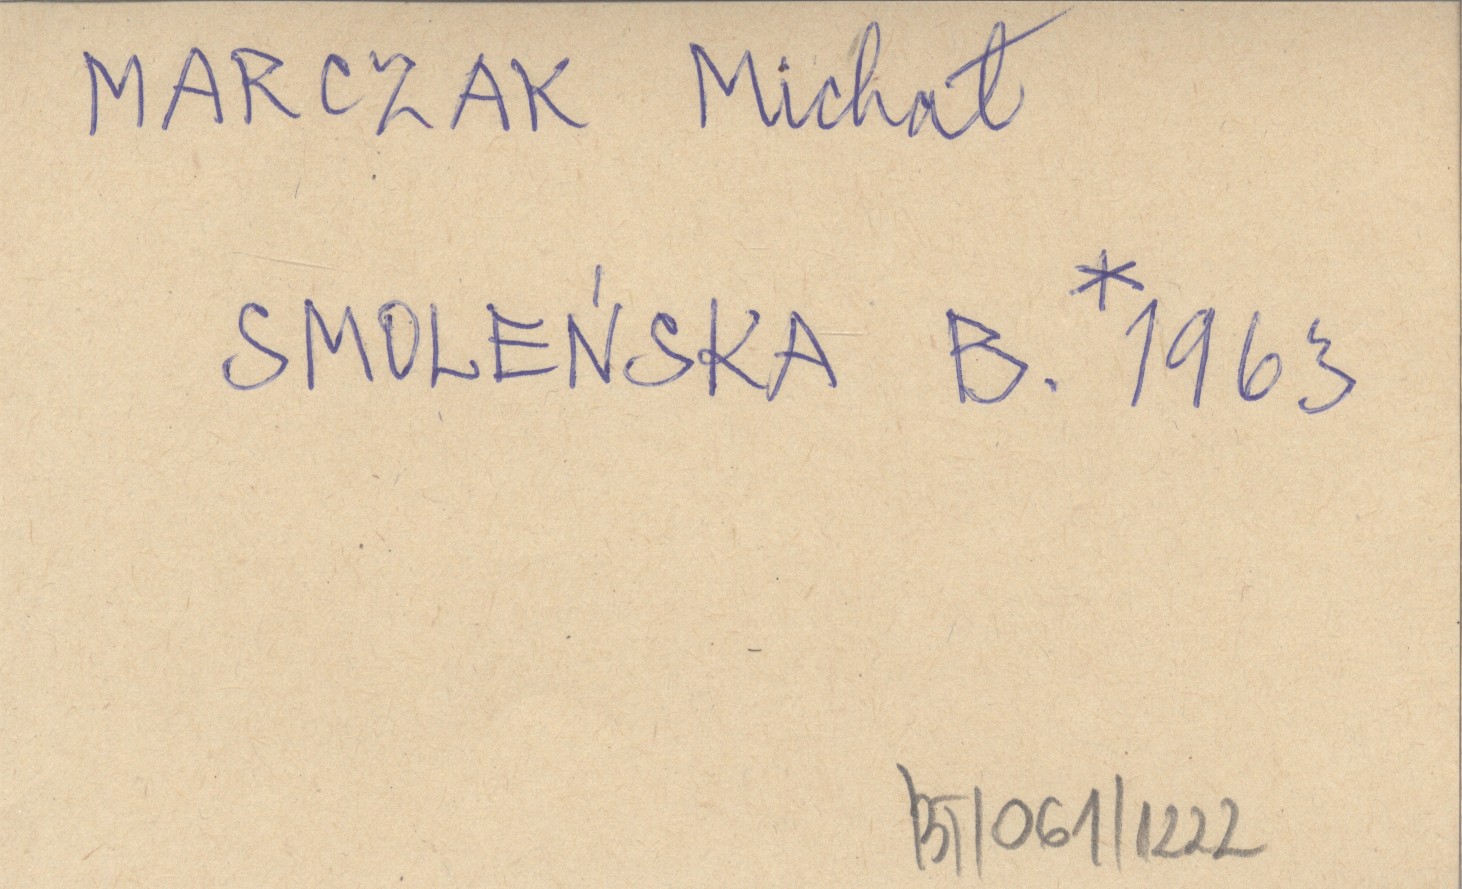 MARCZAK Michał
SMOLEŃSKA B. *1963
BJ/061/1222